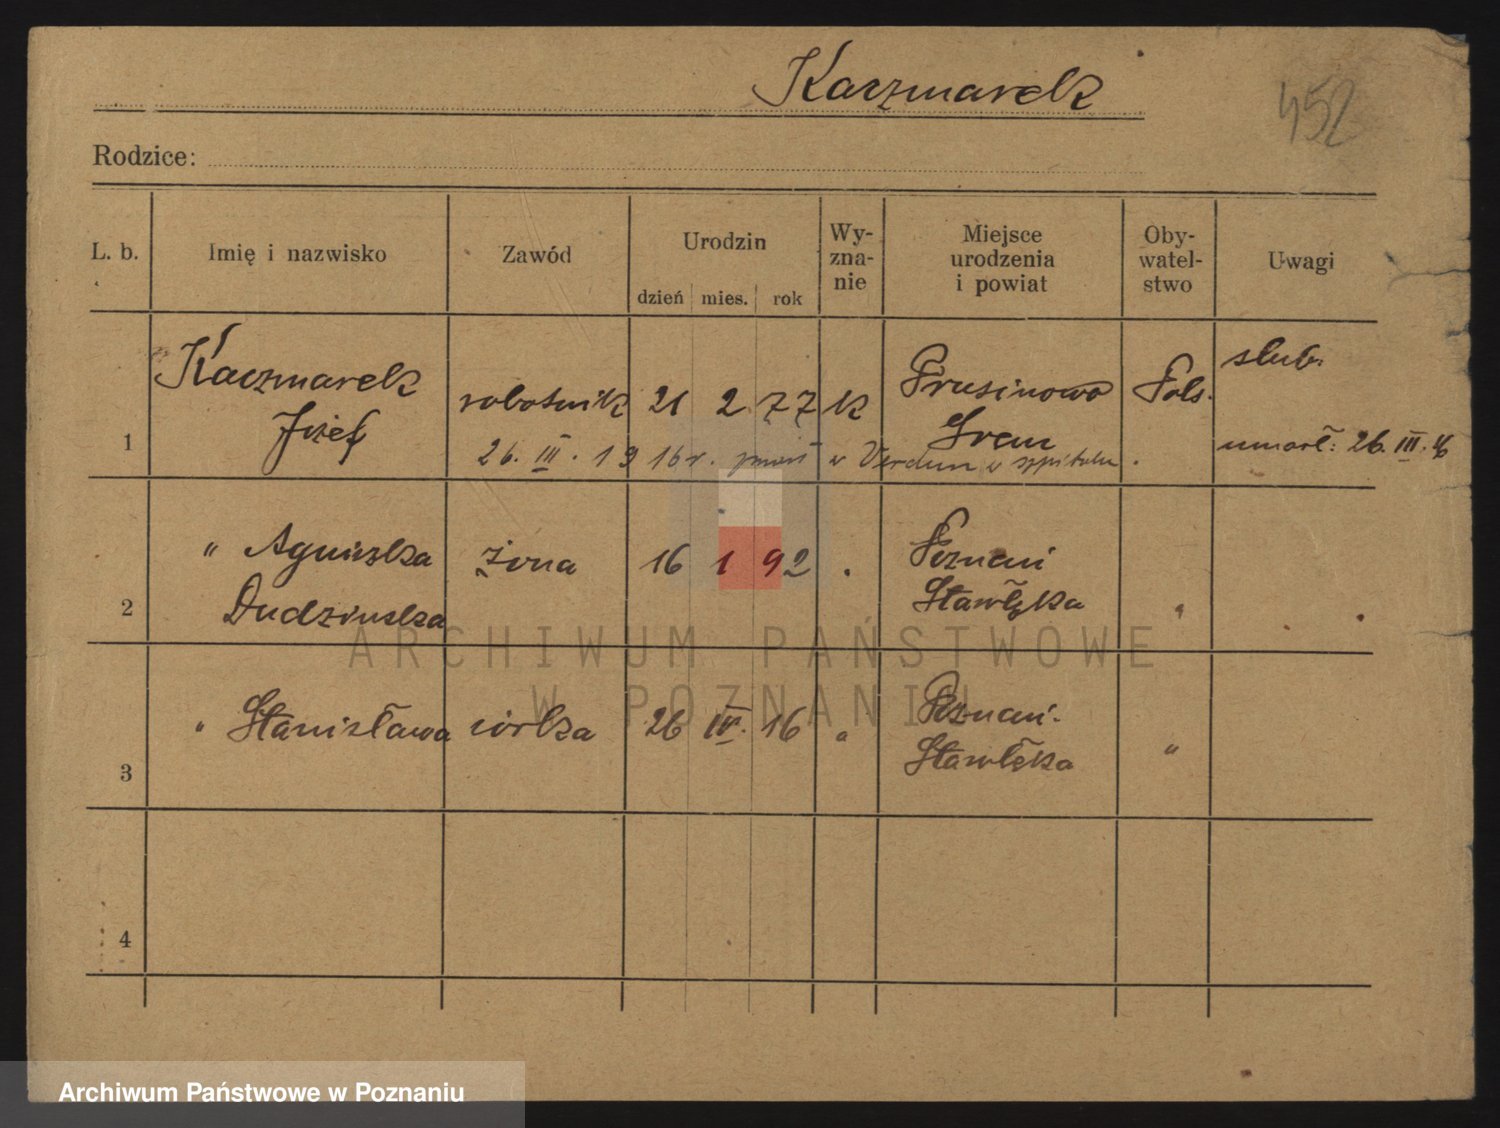 Kaczmarek
452
Rodzice:
L. b. Imię i nazwisko Zawód Urodzin Wy-
zna-
nie Miejsce
urodzenia
i powiat Oby-
watel-
stwo Uwagi
dzień mies. rok
1 Kaczmarek
Józef robotnik 21 2 77 k Prusinowo
Śrem Pols. slub.
umarł: 26. III. 16
26. III. 1916 r. zmarł w Verdun w szpitalu.
2 " Agnieszka
Dudzinska żona 16 1 92 . Poznań
Stawłęka "
3 " Stanisława córka 26 IV. 16 " Poznań.
Stawłęka "
4
ARCHIWUM PAŃSTWOWE
W POZNANIU
Archiwum Państwowe w Poznaniu